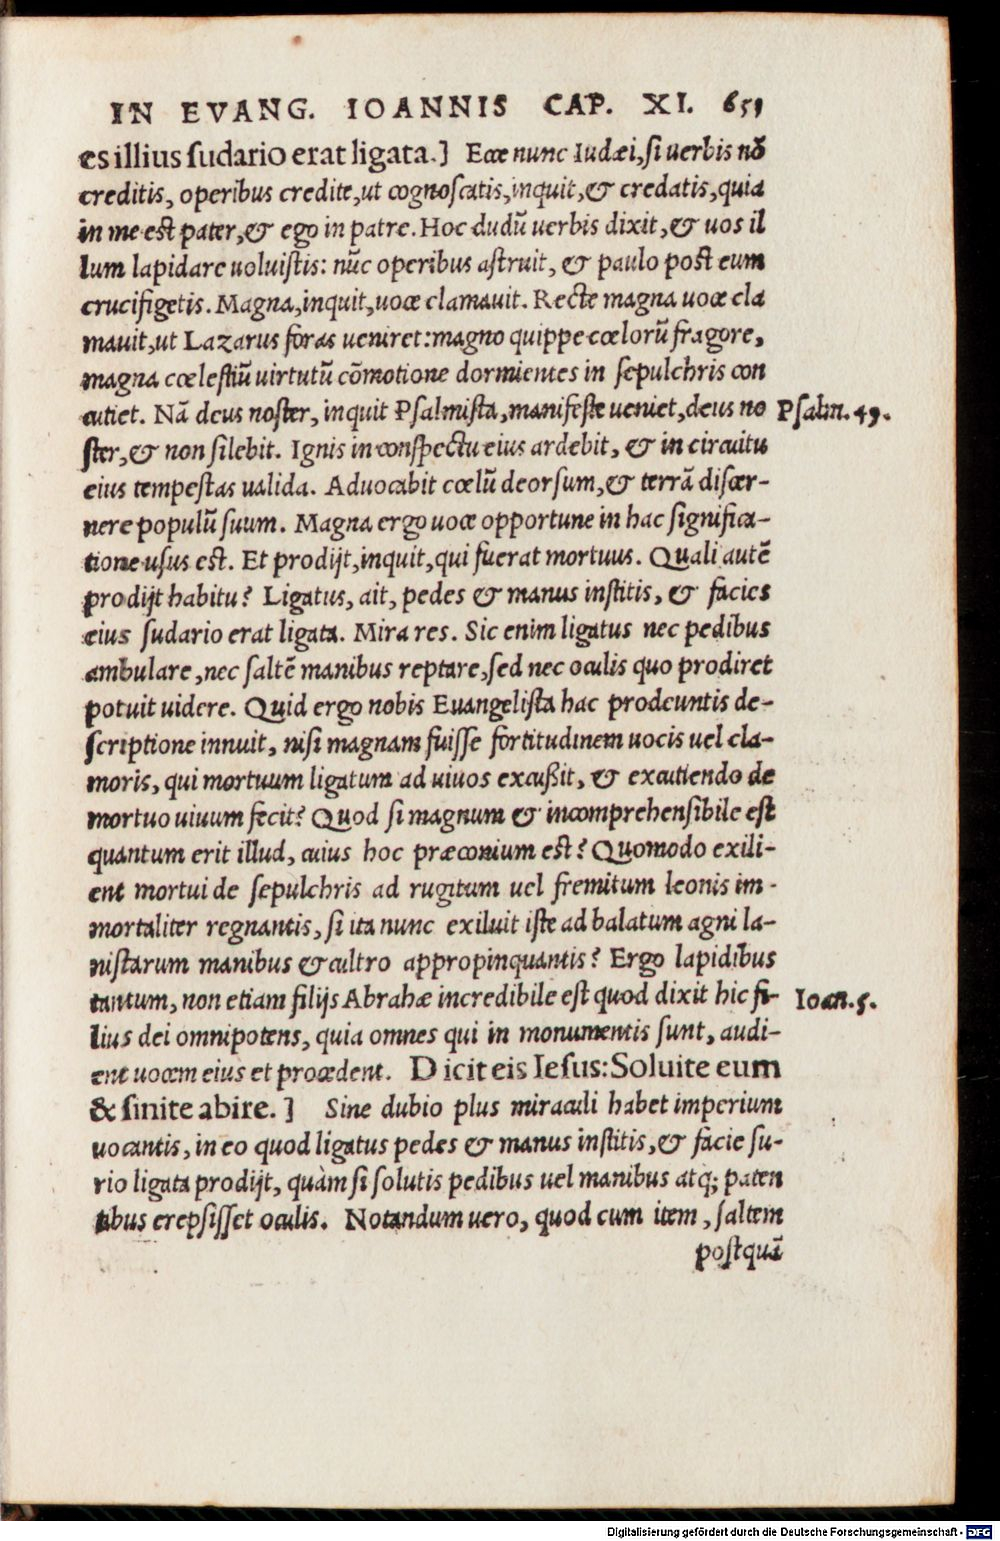 IN EVANG. IOANNIS CAP. XI. 651
es illius sudario erat ligata.] Ecce nunc Iudæi, si uerbis nō
creditis, operibus credite, ut cognoscatis, inquit, & credatis, quia
in me est pater, & ego in patre. Hoc dudū uerbis dixit, & uos il
lum lapidare uoluistis: nūc operibus astruit, & paulo post eum
crucifigetis. Magna, inquit, uoce clamauit. Recte magna uoce cla
mauit, ut Lazarus foras ueniret: magno quippe cœlorū fragore,
magna cœlestiū uirtutū cōmotione dormientes in sepulchris con
cutiet. Nā deus noster, inquit Psalmista, manifeste ueniet, deus no
Psalm. 49.
ster, & non silebit. Ignis in conspectu eius ardebit, & in circuitu
eius tempestas ualida. Aduocabit cœlū deorsum, & terrā discer-
nere populū suum. Magna ergo uoce opportune in hac significa-
tione usus est. Et prodijt, inquit, qui fuerat mortuus. Quali autē
prodijt habitu? Ligatus, ait, pedes & manus institis, & facies
eius sudario erat ligata. Mira res. Sic enim ligatus nec pedibus
ambulare, nec saltē manibus reptare, sed nec oculis quo prodiret
potuit uidere. Quid ergo nobis Euangelista hac prodeuntis de-
scriptione innuit, nisi magnam fuisse fortitudinem uocis uel cla-
moris, qui mortuum ligatum ad uiuos excußit, & excutiendo de
mortuo uiuum fecit? Quod si magnum & incomprehensibile est
quantum erit illud, cuius hoc præconium est? Quomodo exili-
ent mortui de sepulchris ad rugitum uel fremitum leonis im-
mortaliter regnantis, si ita nunc exiluit iste ad balatum agni la-
nistarum manibus & cultro appropinquantis? Ergo lapidibus
tantum, non etiam filijs Abrahæ incredibile est quod dixit hic fi-
Ioan. 5.
lius dei omnipotens, quia omnes qui in monumentis sunt, audi-
ent uocem eius et procedent. Dicit eis Iesus: Soluite eum
& sinite abire.] Sine dubio plus miraculi habet imperium
uocantis, in eo quod ligatus pedes & manus institis, & facie su-
rio ligata prodijt, quàm si solutis pedibus uel manibus atq; paten
tibus erepsisset oculis. Notandum uero, quod cum item, saltem
postquā
Digitalisierung gefördert durch die Deutsche Forschungsgemeinschaft - DFG